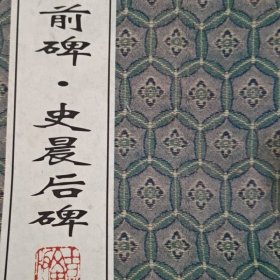 前碑·史晨后碑